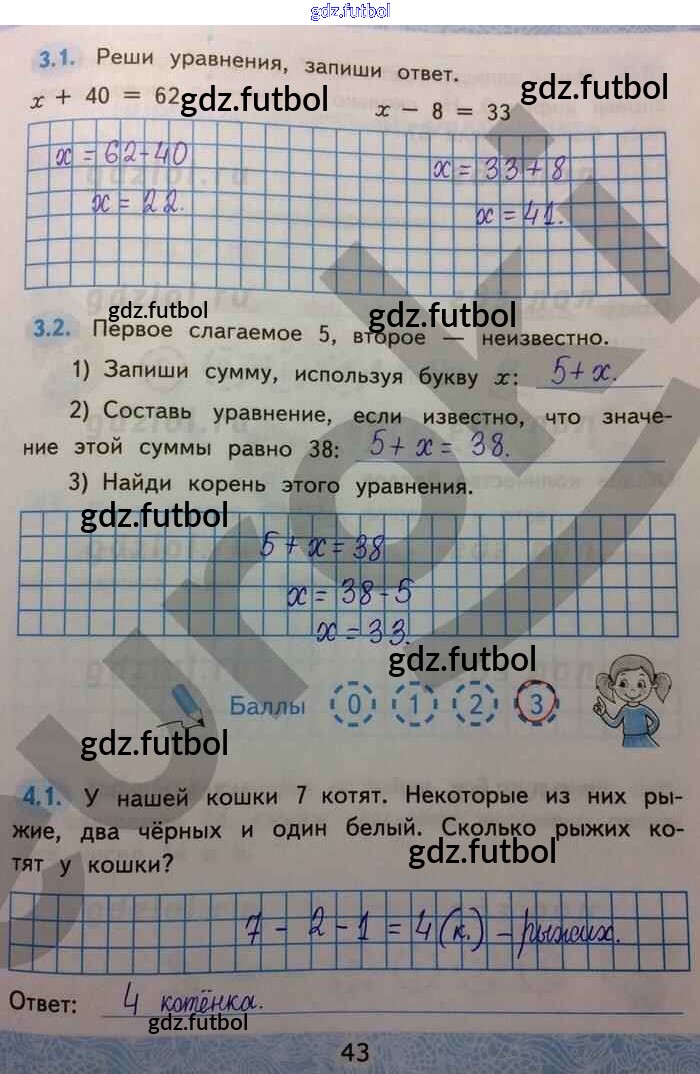 gdz.futbol
3.1. Реши уравнения, запиши ответ.
x + 40 = 62 x − 8 = 33
gdz.futbol
x = 62-40 x = 33+8
x = 22. x = 41.
gdz.futbol gdz.futbol
3.2. Первое слагаемое 5, второе — неизвестно.
1) Запиши сумму, используя букву x: 5+x.
2) Составь уравнение, если известно, что значе-
ние этой суммы равно 38: 5+x=38.
3) Найди корень этого уравнения.
gdz.futbol
5+x=38
x=38-5
x=33.
gdz.futbol
Баллы 0 1 2 3
gdz.futbol
4.1. У нашей кошки 7 котят. Некоторые из них ры-
жие, два чёрных и один белый. Сколько рыжих ко-
тят у кошки?
gdz.futbol
7-2-1=4(к.) – рыжих.
Ответ: 4 котёнка.
gdz.futbol
43